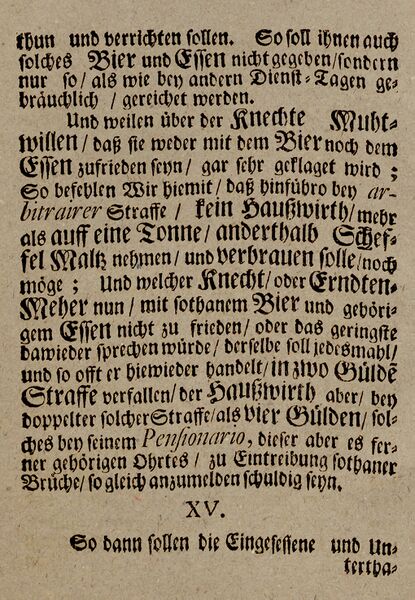 thun und verrichten sollen. So soll ihnen auch
solches Bier und Essen nicht gegeben/sondern
nur so/ als wie bey andern Dienst-Tagen ge-
bräuchlich / gereichet werden.
Und weilen über der Knechte Muht-
willen/ daß sie weder mit dem Bier noch dem
Essen zufrieden seyn/ gar sehr geklaget wird;
So befehlen Wir hiemit/ daß hinführo bey ar-
bitrairer Straffe/ kein Haußwirth/mehr
als auff eine Tonne/ anderthalb Schef-
fel Maltz nehmen/ und verbrauen solle/noch
möge; Und welcher Knecht/oder Erndten-
Meher nun/ mit sothanem Bier und gehöri-
gem Essen nicht zu frieden/ oder das geringste
dawieder sprechen würde/ derselbe soll jedesmahl/
und so offt er hiewieder handelt/ in zwo Güldẽ
Straffe verfallen/ der Haußwirth aber/ bey
doppelter solcher Straffe/als vier Gülden/ sol-
ches bey seinem Pensionario, dieser aber es fer-
ner gehörigen Ohrtes/ zu Eintreibung sothaner
Brüche/ so gleich anzumelden schuldig seyn.
XV.
So dann sollen die Eingesessene und Un-
tertha-